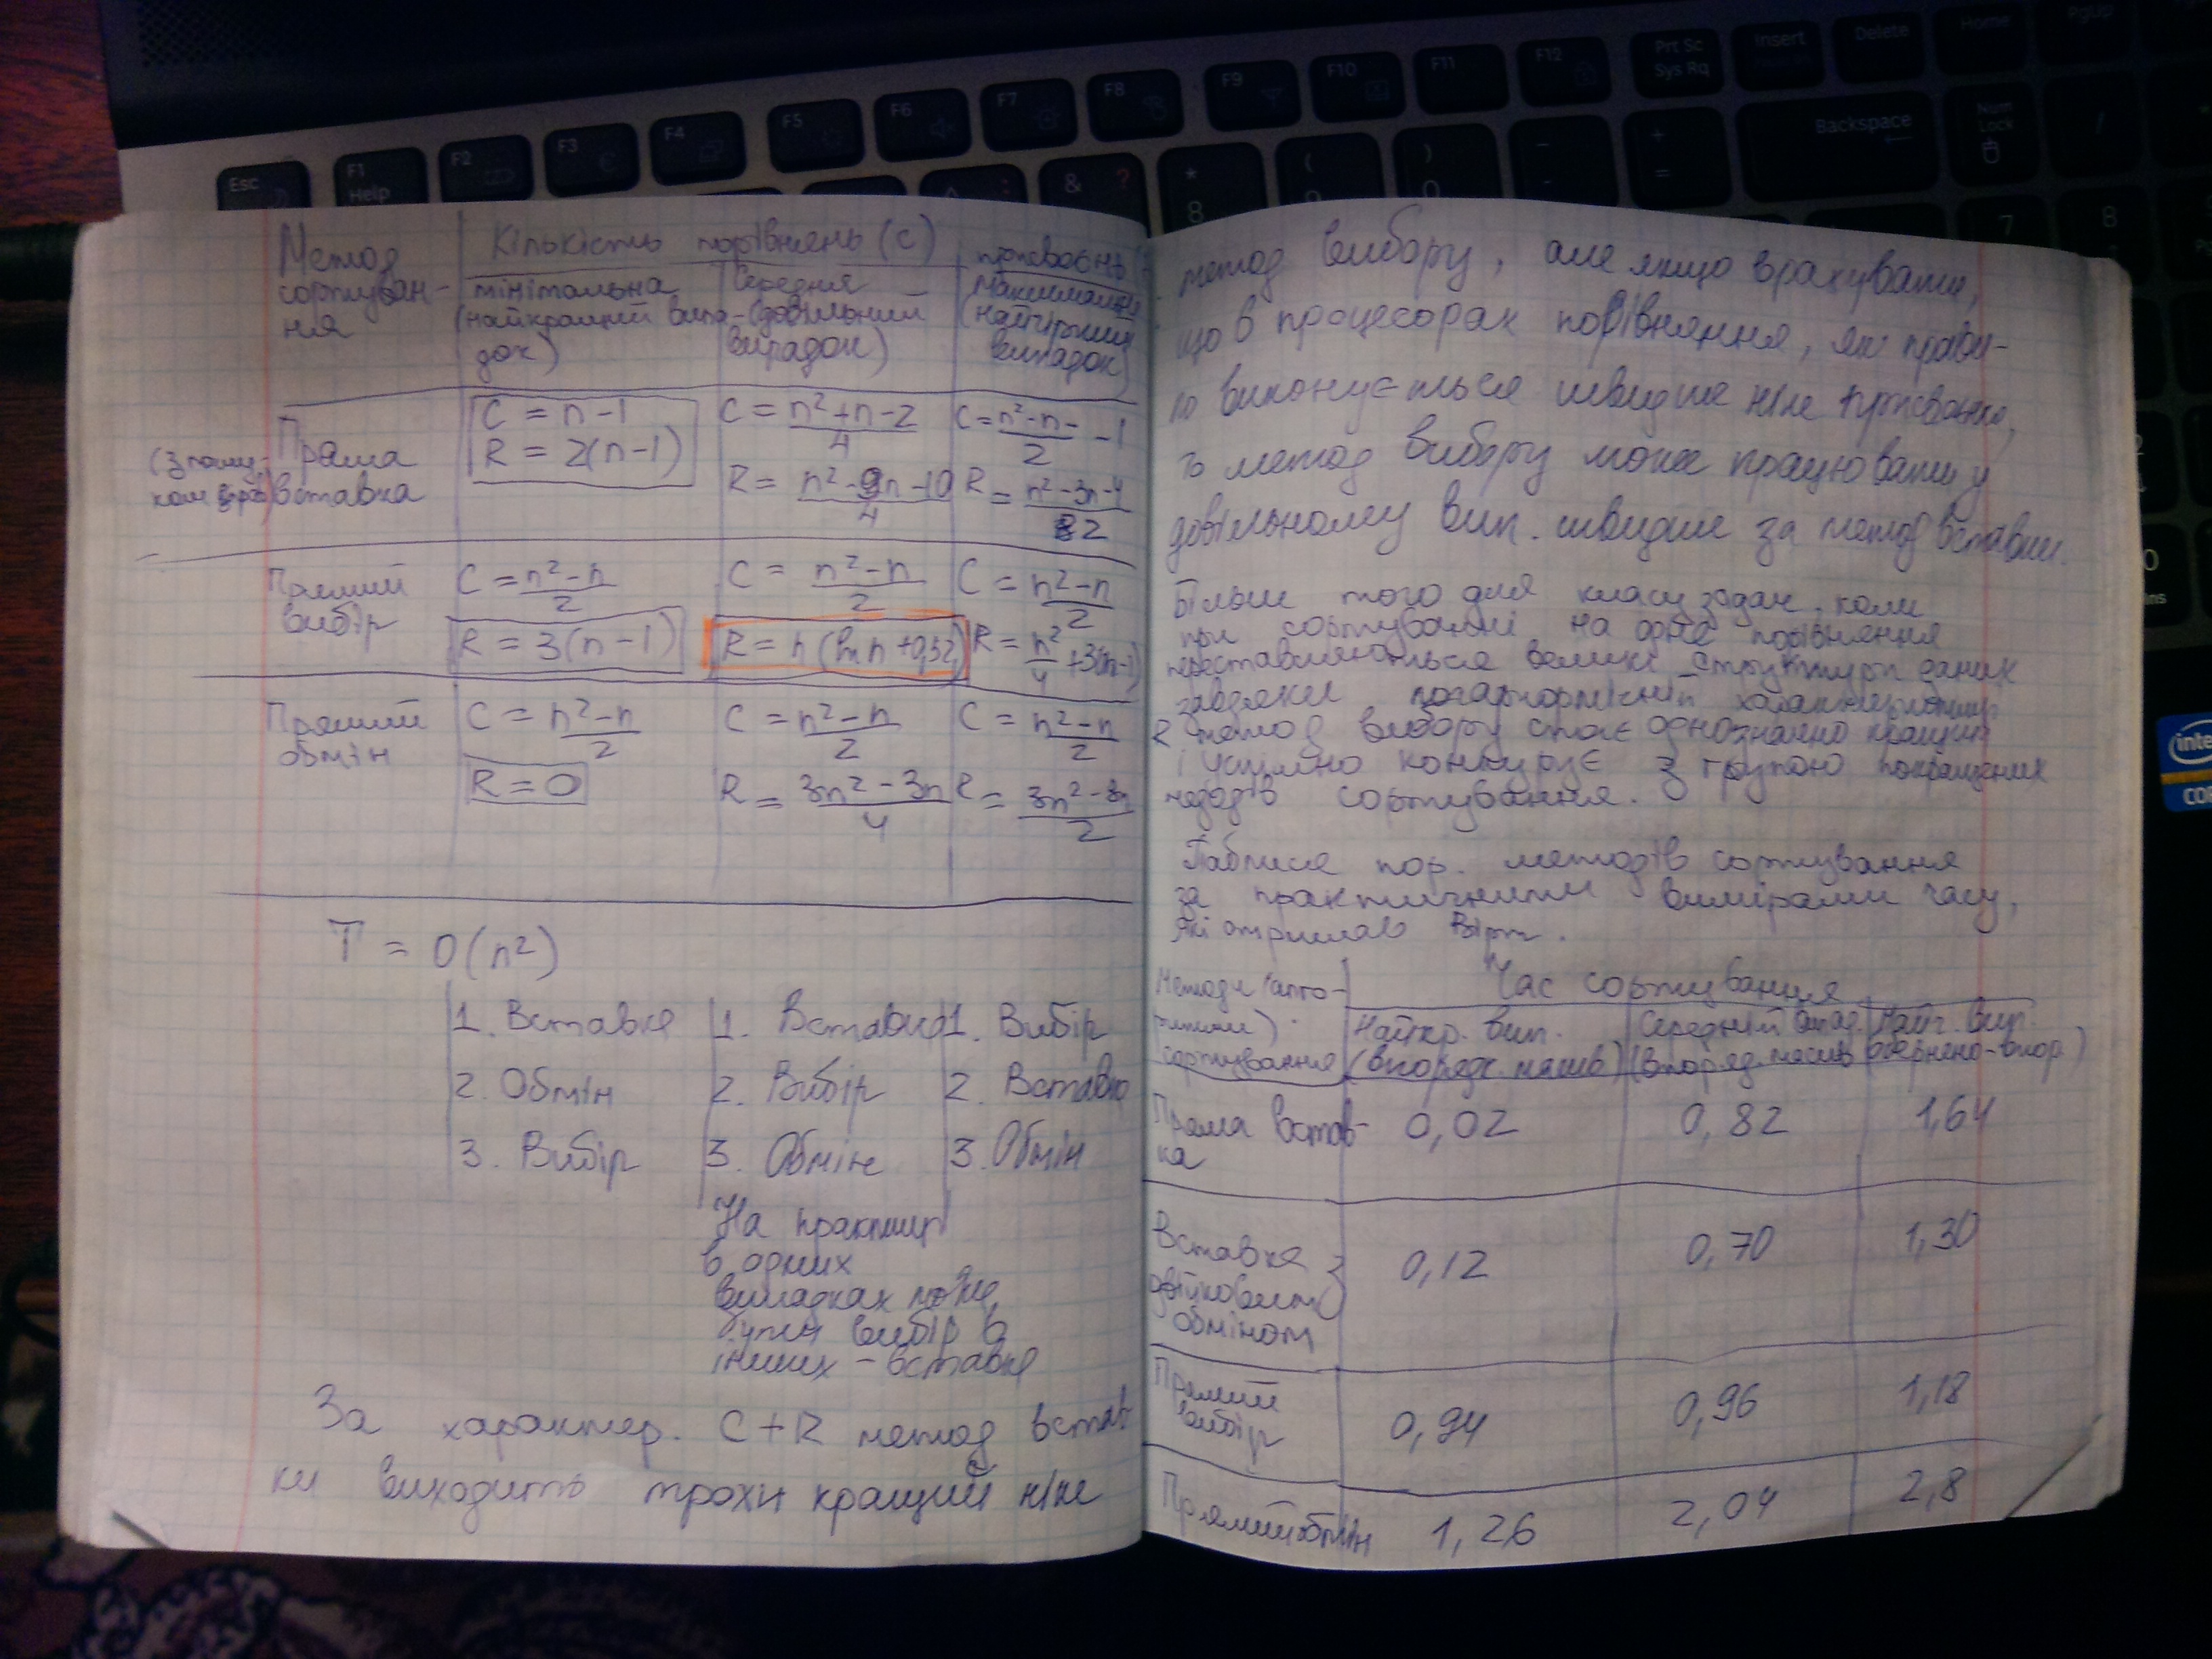 Esc
F1
Help
F2
F3
F4
F5
F6
F7
F8
F9
F10
F11
F12
Prt Sc
Sys Rq
Insert
Delete
Home
PgUp
Backspace
Num
Lock
Метод
сортуван-
ня
Кількість порівнянь (C)
присвоєнь
мінімальна
(найкращий випа-
док)
Середня
(довільний
випадок)
максимальна
(найгірший
випадок)
(з пошу-
ком
Пряма
вставка
C = n-1
R = 2(n-1)
C = n²+n-2 / 4
R = n²-9n-10 / 4
C = n²-n- / 2 -1
R = n²-3n-4 / 2
Прямий
вибір
C = n²-n / 2
R = 3(n-1)
C = n²-n / 2
R = n(ln n +0,52)
C = n²-n / 2
R = n²/4 +3(n-1)
Прямий
обмін
C = n²-n / 2
R = 0
C = n²-n / 2
R = 3n²-3n / 4
C = n²-n / 2
R = 3n²-3n / 2
T = O(n²)
1. Вставка
2. Обмін
3. Вибір
1. Вставка
2. Вибір
3. Обмін
1. Вибір
2. Вставка
3. Обмін
На практиці
в одних
випадках може
бути вибір в
інших - вставка
За характер. C+R метод встав
ки виходить трохи кращий ніж
метод вибору, але якщо врахувати,
що в процесорах порівняння, як прави-
ло виконується швидше ніж присвоєння,
то метод вибору може працювати у
довільному вип. швидше за метод вставки.
Більш того для класу задач, коли
при сортуванні на одне порівняння
переставляються великі структури даних
завдяки логарифмічній характеристиці
R метод вибору стає однозначно кращим
і успішно конкурує з групою покращених
методів сортування.
Таблиця пор. методів сортування
за практичними вимірами часу,
які отримав Вірт.
Методи (алго-
ритми)
сортування
Час сортування
Найкр. вип.
(впорядк. масив)
Середній випад.
(впоряд. масив
Найг. вип.
обернено-впор)
Пряма встав-
ка
0,02
0,82
1,64
Вставка з
двійковим
обміном
0,12
0,70
1,30
Прямий
вибір
0,94
0,96
1,18
Прямий обмін
1,26
2,04
2,8